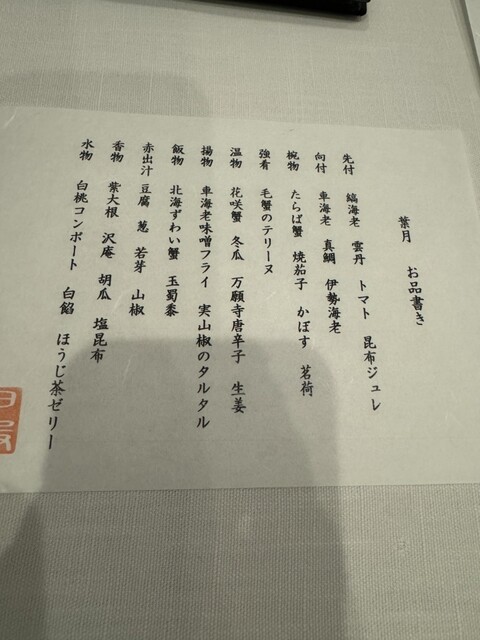 葉月 お品書き
先付 縞海老 雲丹 トマト 昆布ジュレ
向付 車海老 真鯛 伊勢海老
椀物 たらば蟹 焼茄子 かぼす 茗荷
強肴 毛蟹のテリーヌ
温物 花咲蟹 冬瓜 万願寺唐辛子 生姜
揚物 車海老味噌フライ 実山椒のタルタル
飯物 北海ずわい蟹 玉蜀黍
赤出汁 豆腐 葱 若芽 山椒
香物 紫大根 沢庵 胡瓜 塩昆布
水物 白桃コンポート 白餡 ほうじ茶ゼリー